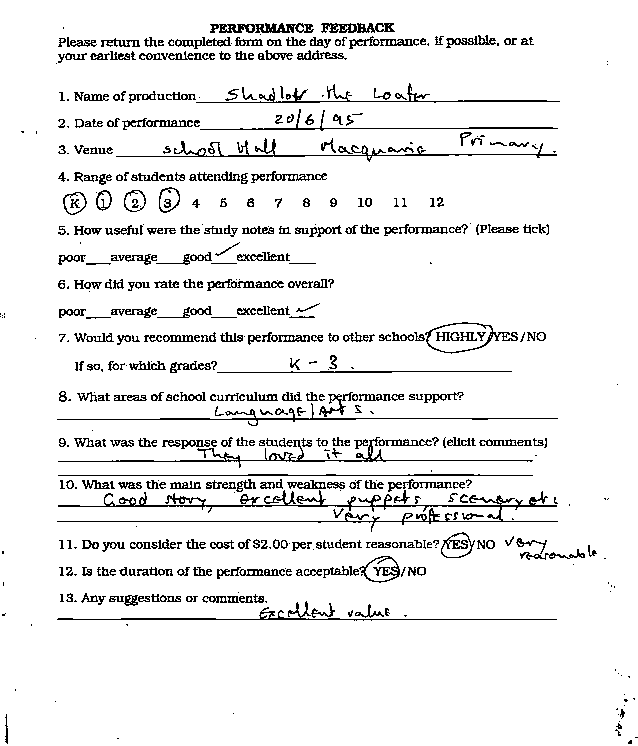 PERFORMANCE FEEDBACK
Please return the completed form on the day of performance, if possible, or at
your earliest convenience to the above address.
1. Name of production the Loafer
2. Date of performance 20/6/95
3. Venue School Hall Macquarie Primary.
4. Range of students attending performance
K 1 2 3 4 5 6 7 8 9 10 11 12
5. How useful were the study notes in support of the performance? (Please tick)
poor___average___good ✓ excellent___
6. How did you rate the performance overall?
poor___average___good___excellent ✓
7. Would you recommend this performance to other schools? HIGHLY/YES/NO
If so, for which grades? K - 3.
8. What areas of school curriculum did the performance support?
Language/Arts.
9. What was the response of the students to the performance? (elicit comments)
They loved it all
10. What was the main strength and weakness of the performance?
Good story, excellent puppets scenery etc
Very professional.
11. Do you consider the cost of $2.00 per student reasonable? YES/NO Very
reasonable.
12. Is the duration of the performance acceptable? YES/NO
13. Any suggestions or comments.
Excellent value.